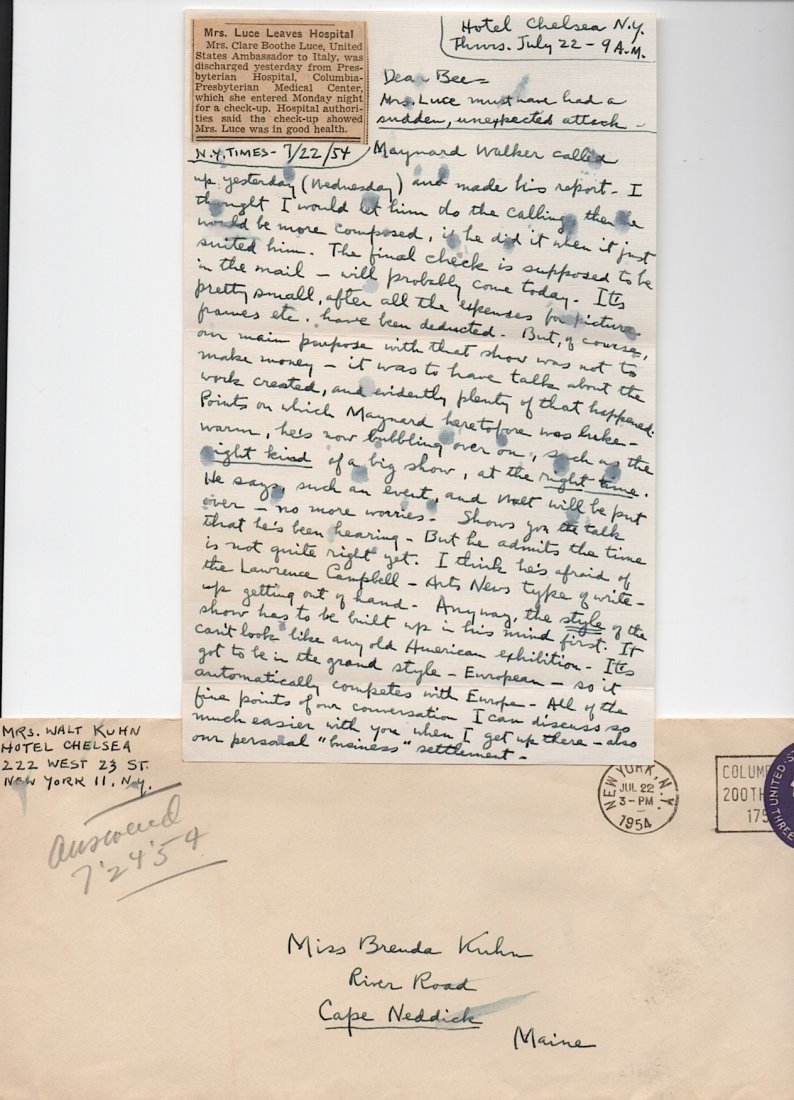 Mrs. Luce Leaves Hospital
Mrs. Clare Boothe Luce, United
States Ambassador to Italy, was
discharged yesterday from Pres-
byterian Hospital, Columbia-
Presbyterian Medical Center,
which she entered Monday night
for a check-up. Hospital authori-
ties said the check-up showed
Mrs. Luce was in good health.
N.Y. TIMES - 7/22/54
Hotel Chelsea N.Y.
Thurs. July 22 - 9 A.M.
Dear Bee =
Mrs. Luce must have had a
sudden, unexpected attack -
Maynard Walker called
up yesterday (Wednesday) and made his report - I
thought I would let him do the calling, then he
would be more composed, if he did it when it just
suited him. The final check is supposed to be
in the mail - will probably come today. It's
pretty small, after all the expenses for picture
frames etc. have been deducted. But, of course,
our main purpose with that show was not to
make money - it was to have talk about the
work created, and evidently plenty of that happened.
Points on which Maynard heretofore was luke-
warm, he's now bubbling over on, such as the
right kind of a big show, at the right time.
He says, such an event, and Walt will be put
over - no more worries - Shows you the talk
that he's been hearing - But he admits the time
is not quite right yet. I think he's afraid of
the Lawrence Campbell - Arts News type of write-
up getting out of hand. Anyway, the style of the
show has to be built up in his mind first. It
can't look like any old American exhibition - It's
got to be in the grand style - European - so it
automatically competes with Europe - All of the
fine points of our conversation I can discuss so
much easier with you when I get up there - also
our personal "business" settlement -
MRS. WALT KUHN
HOTEL CHELSEA
222 WEST 23 ST.
NEW YORK 11, N.Y.
Answered
7'24'54
NEW YORK, N.Y.
JUL 22
3-PM
1954
COLUM
200TH
175
UNITED S
THREE
Miss Brenda Kuhn
River Road
Cape Neddick
Maine